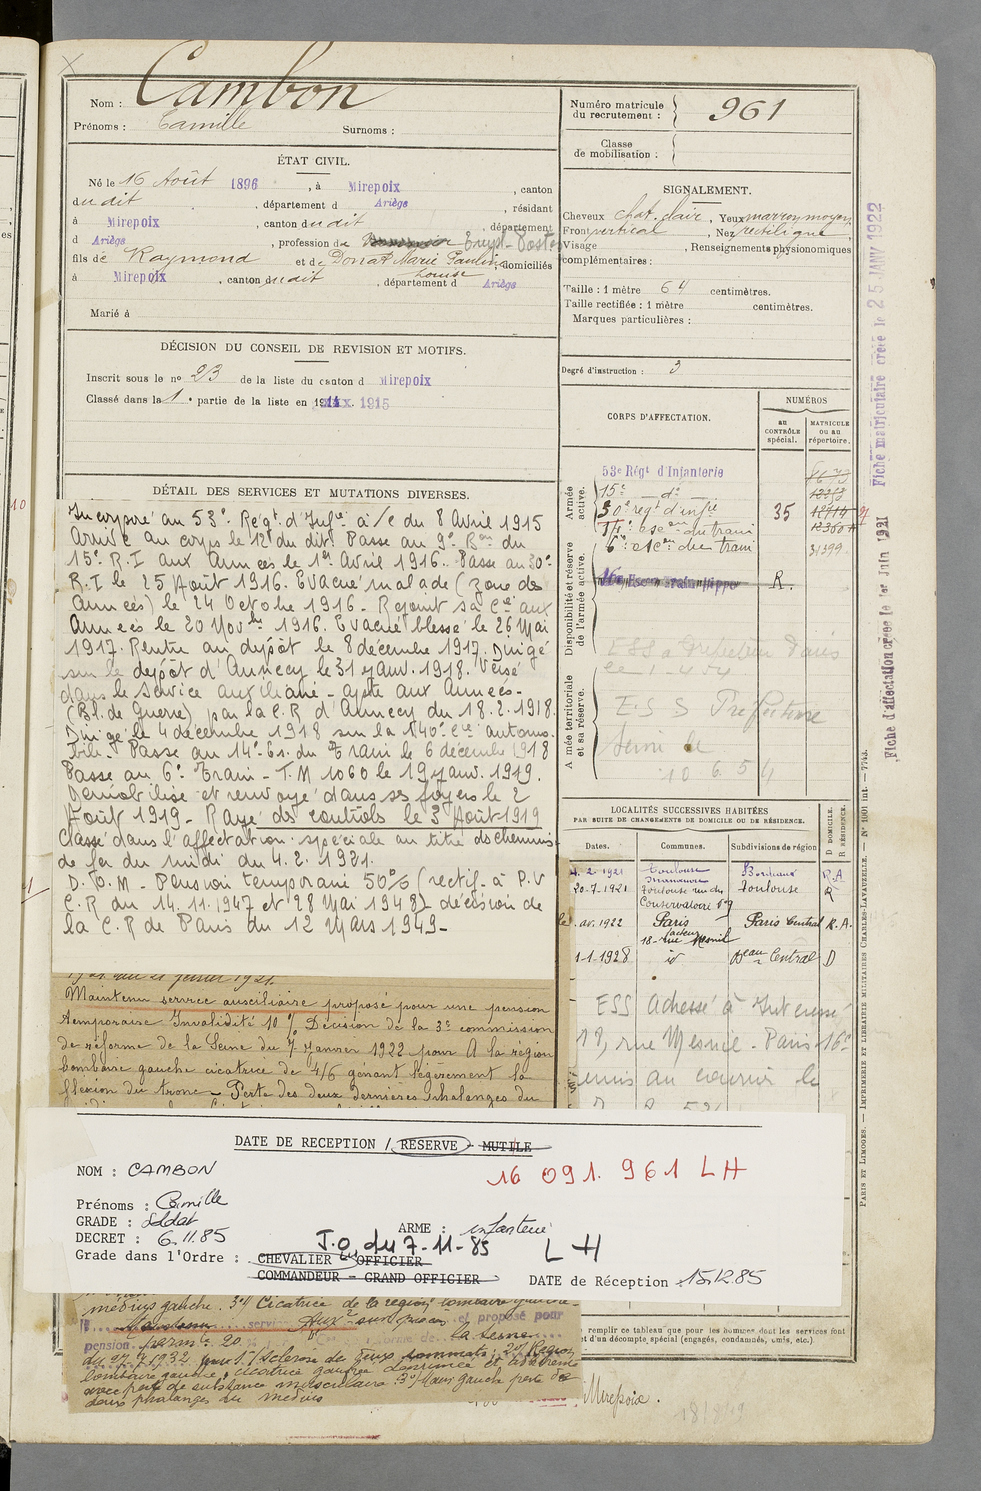 Cambon
Nom :
Prénoms : Camille Surnoms :
Numéro matricule du recrutement : 961
Classe de mobilisation :
ÉTAT CIVIL.
Né le 16 Août 1896, à Mirepoix, canton
dudit, département d Ariège, résidant
à Mirepoix, canton dudit, département
d Ariège, profession de Empl. Postes
fils de Raymond et de Donat Marie Pauline Louise, domiciliés
à Mirepoix, canton dudit, département d Ariège
Marié à
SIGNALEMENT.
Cheveux chat. clair, Yeux marron moyen,
Front vertical, Nez rectiligne
Visage, Renseignements physionomiques
complémentaires :
Taille : 1 mètre 64 centimètres.
Taille rectifiée : 1 mètre centimètres.
Marques particulières :
Degré d'instruction : 3
DÉCISION DU CONSEIL DE REVISION ET MOTIFS.
Inscrit sous le nº 23 de la liste du canton d Mirepoix
Classé dans la 1e partie de la liste en 1915
CORPS D'AFFECTATION.
NUMÉROS
au CONTRÔLE spécial.
MATRICULE ou au répertoire.
Armée active.
53e Régt d'Infanterie
15e dº
30e régt d'infie 35
14e escon du train
6e escon du train 31399
R.
Disponibilité et réserve de l'armée active.
Armée territoriale et sa réserve.
ESS Préfecture
10 6 54
Fiche matriculaire créée le 25 JANV 1922
Fiche d'affectation créée le 1er Juin 1921
DÉTAIL DES SERVICES ET MUTATIONS DIVERSES.
Incorporé au 53e Regt d'Infie à/c du 8 Avril 1915
Arrivé au corps le 12 du dit. Passé au 9e Bon du
15e R.I aux Armées le 1er Avril 1916. Passé au 30e
R.I le 25 Août 1916. Evacué malade (zone des
Armées) le 24 Octobre 1916. Rejoint sa Cie aux
Armées le 20 Novbre 1916. Evacué blessé le 26 Mai
1917. Rentré au dépôt le 8 décembre 1917. Dirigé
sur le dépôt d'Annecy le 31 janv. 1918. Versé
dans le service auxiliaire - apte aux Armées -
(Bl. de Guerre) par la C.R d'Annecy du 18.2.1918.
Dirigé le 4 décembre 1918 sur la 140e Cie automo-
bile. Passé au 14e Es. du Train le 6 décembre 1918
Passé au 6e Train - T.M 1060 le 19 janv. 1919.
Démobilisé et renvoyé dans ses foyers le 2
Août 1919 - Rayé des contrôls le 3 Août 1919
Classé dans l'affectation spéciale au titre des chemins
de fer du midi du 4.2.1921.
D.O.M - Pension temporaire 50% (rectif. à P.V
C.R du 14.11.1947 et 28 Mai 1948) décision de
la C.R de Paris du 12 Mars 1949 -
LOCALITÉS SUCCESSIVES HABITÉES
PAR SUITE DE CHANGEMENTS DE DOMICILE OU DE RÉSIDENCE.
Dates. Communes. Subdivisions de région D DOMICILE. R RÉSIDENCE.
4.2.1921 Toulouse Bordeaux R.A
20-7-1921 Toulouse rue du Conservatoire nº9 Toulouse R
av. 1922 Paris Paris Central R.A.
18 rue Mesnil
1-1-1928 id Central D
ESS Adressé à Intéressé
18, rue Mesnil - Paris 16e
Maintenu service auxiliaire proposé pour une pension
temporaire Invalidité 10% Décision de la 3e commission
de réforme de la Seine du 7 Janvier 1922 pour A la région
lombaire gauche cicatrice de 4/6 gênant légèrement la
flexion du tronc - Perte des deux dernières phalanges du
DATE DE RECEPTION / RESERVE - MUTILE
NOM : CAMBON 16 091. 961 LH
Prénoms : Camille
GRADE : Soldat ARME : infanterie
DECRET : 6.11.85 J.O. du 7-11-85 LH
Grade dans l'Ordre : CHEVALIER OFFICIER
COMMANDEUR - GRAND OFFICIER DATE de Réception 15.12.85
médius gauche. 3º/ Cicatrice de la région lombaire gauche -
et proposé pour
pension 20
du 27.7.1932 pour 1º/ sclérose de deux sommets; 2º/ Région
lombaire gauche, cicatrice gaufrée, déprimée et adhérente
avec perte de substance musculaire. 3º/ Main gauche perte des
deux phalanges du médius
remplir ce tableau que pour les hommes dont les services font
et d'un décompte spécial (engagés, condamnés, omis, etc.)
Mirepoix.
PARIS ET LIMOGES. — IMPRIMERIE ET LIBRAIRIE MILITAIRES CHARLES-LAVAUZELLE. — Nº 1001 int. — 7743.